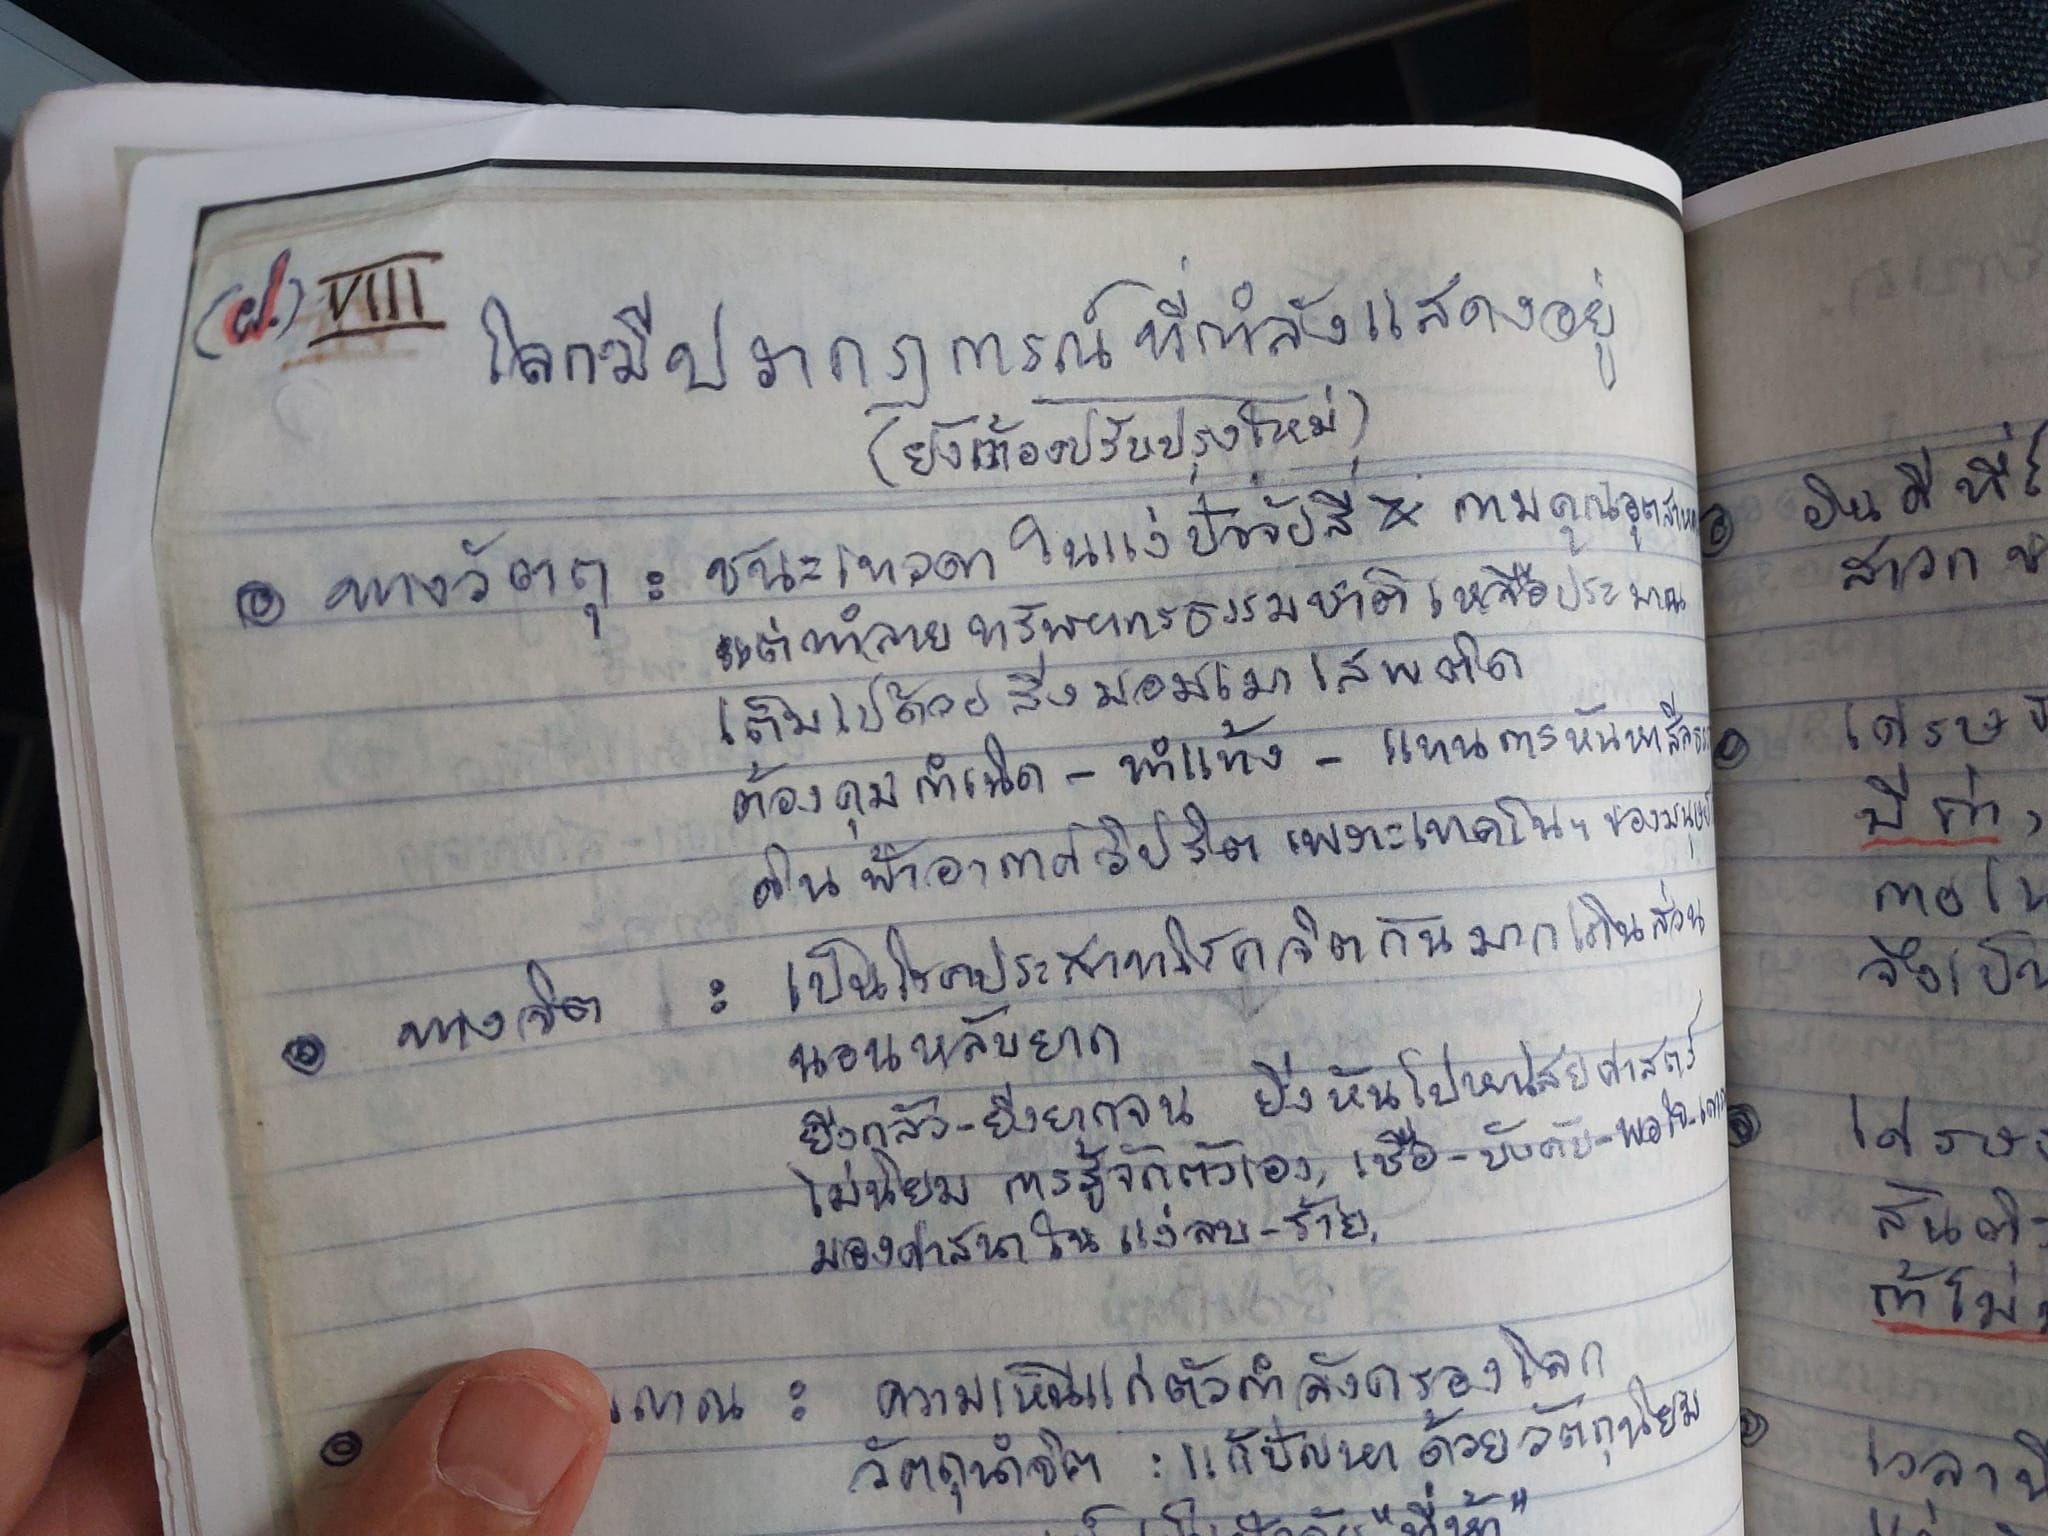 (ฝ.) VIII
โลกมีปรากฏการณ์ที่กำลังแสดงอยู่
(ยังต้องปรับปรุงใหม่)
ทางวัตถุ : ชนะเทวดา ในแง่ปัจจัยสี่ กามคุณอุตสาห
แต่ทำลายทรัพยากรธรรมชาติเหลือประมาณ
เต็มไปด้วยสิ่งมอมเมาเสพติด
ต้องคุมกำเนิด - ทำแท้ง - แทนการหันหาศีลธรร
ดินฟ้าอากาศวิปริต เพราะเทคโนฯ ของมนุษย์
ทางจิต : เป็นโรคประสาทโรคจิตกันมากเกินส่วน
นอนหลับยาก
ยิ่งกลัว-ยิ่งยากจน ยิ่งหันไปหาไสยศาสตร์
ไม่นิยม การรู้จักตัวเอง, เชื่อ-บังคับ-พอใจ-เคา
มองศาสนาในแง่ลบ-ร้าย.
ญาณ : ความเห็นแก่ตัวกำลังครองโลก
วัตถุนำจิต : แก้ปัญหาด้วยวัตถุนิยม
"ที่ห้า"
อินทีรี
สาวก
เศรษ
ปีเก่า,
ภายใน
จึงเป็น
เศรษ
สันติ
ถ้าไม่
เวลาปี